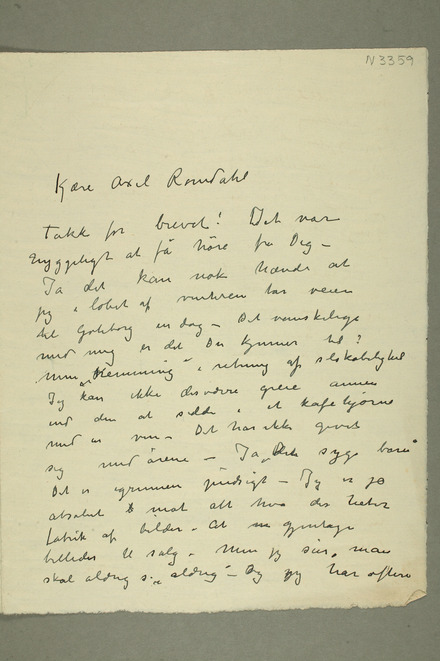 N 3359
Kjære Axel Romdahl
Takk for brevet! Det var
hyggeligt at få høre fra Dig –
Ja det kan nok hænde at
jeg i løbet af vinteren tar veien
til Göteborg en dag – Det vanskelige
med mig er det Du kjenner til?
min „Hemming" i retning af selskabelighed
Jeg kan ikke desværre greie annen
end den at sidde i et kafehjørne
med en ven – Det har ikke givet
sig med årene – Ja „Det syge barn"
Det er egrunnen jndsigt – Jeg er jo
absolut mot alt hva der heter
fabrik af billeder – At gjentage
billeder til salg – Men jeg sier, man
skal aldrig si „aldrig" – Og jeg har oftere